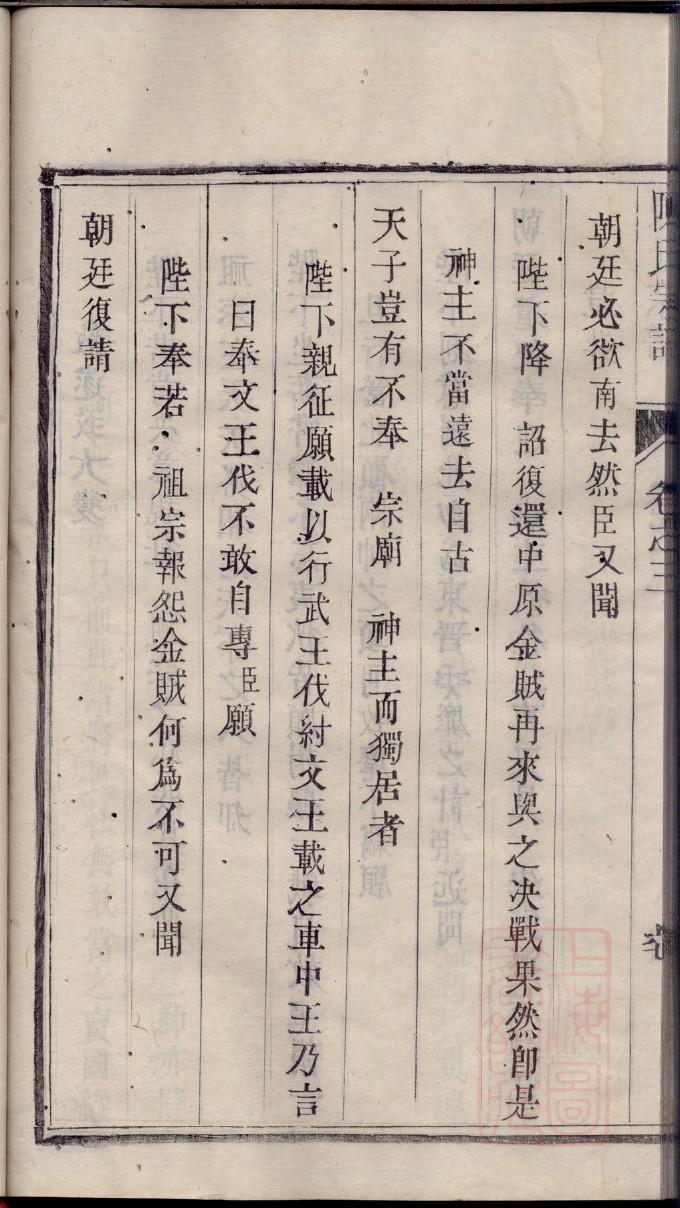 陳氏宗譜
卷之三
朝廷必欲南去然臣又聞
陛下降 詔復還中原金賊再來與之決戰果然卽是
神主不當遠去自古
天子豈有不奉 宗廟 神主而獨居者
陛下親征願載以行武王伐紂文王載之車中王乃言
曰奉文王伐不敢自專臣願
陛下奉若 祖宗報怨金賊何爲不可又聞
朝廷復請